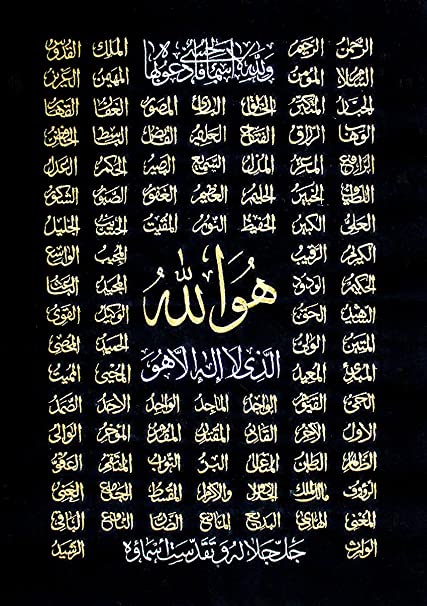 الرحمن الرحيم ولله الأسماء الحسنى فادعوه بها الملك القدوس
السلام المؤمن المهيمن العزيز
الجبار المتكبر الخالق البارئ المصور الغفار القهار
الوهاب الرزاق الفتاح العليم القابض الباسط الخافض
الرافع المعز المذل السميع البصير الحكم العدل
اللطيف الخبير الحليم العظيم الغفور الصبور الشكور
العلي الكبير الحفيظ النور المقيت الحسيب الجليل
الكريم الرقيب المجيب الواسع
الحكيم الودود هو الله المجيد الباعث
الشهيد الحق الوكيل القوي
المتين الولي الحميد المحصي
المبدئ المعيد الذي لا إله إلا هو المحيي المميت
الحي القيوم الواجد الماجد الواحد الاحد الصمد
الاول الآخر القادر المقتدر المقدم المؤخر الوالي
الظاهر الباطن المتعالي البر التواب المنتقم العفو
الرؤوف مالك الملك ذو الجلال والاكرام المقسط الجامع الغني
المغني الهادي البديع المانع الضار النافع الباقي
الوارث جل جلاله وتقدست اسماؤه الرشيد